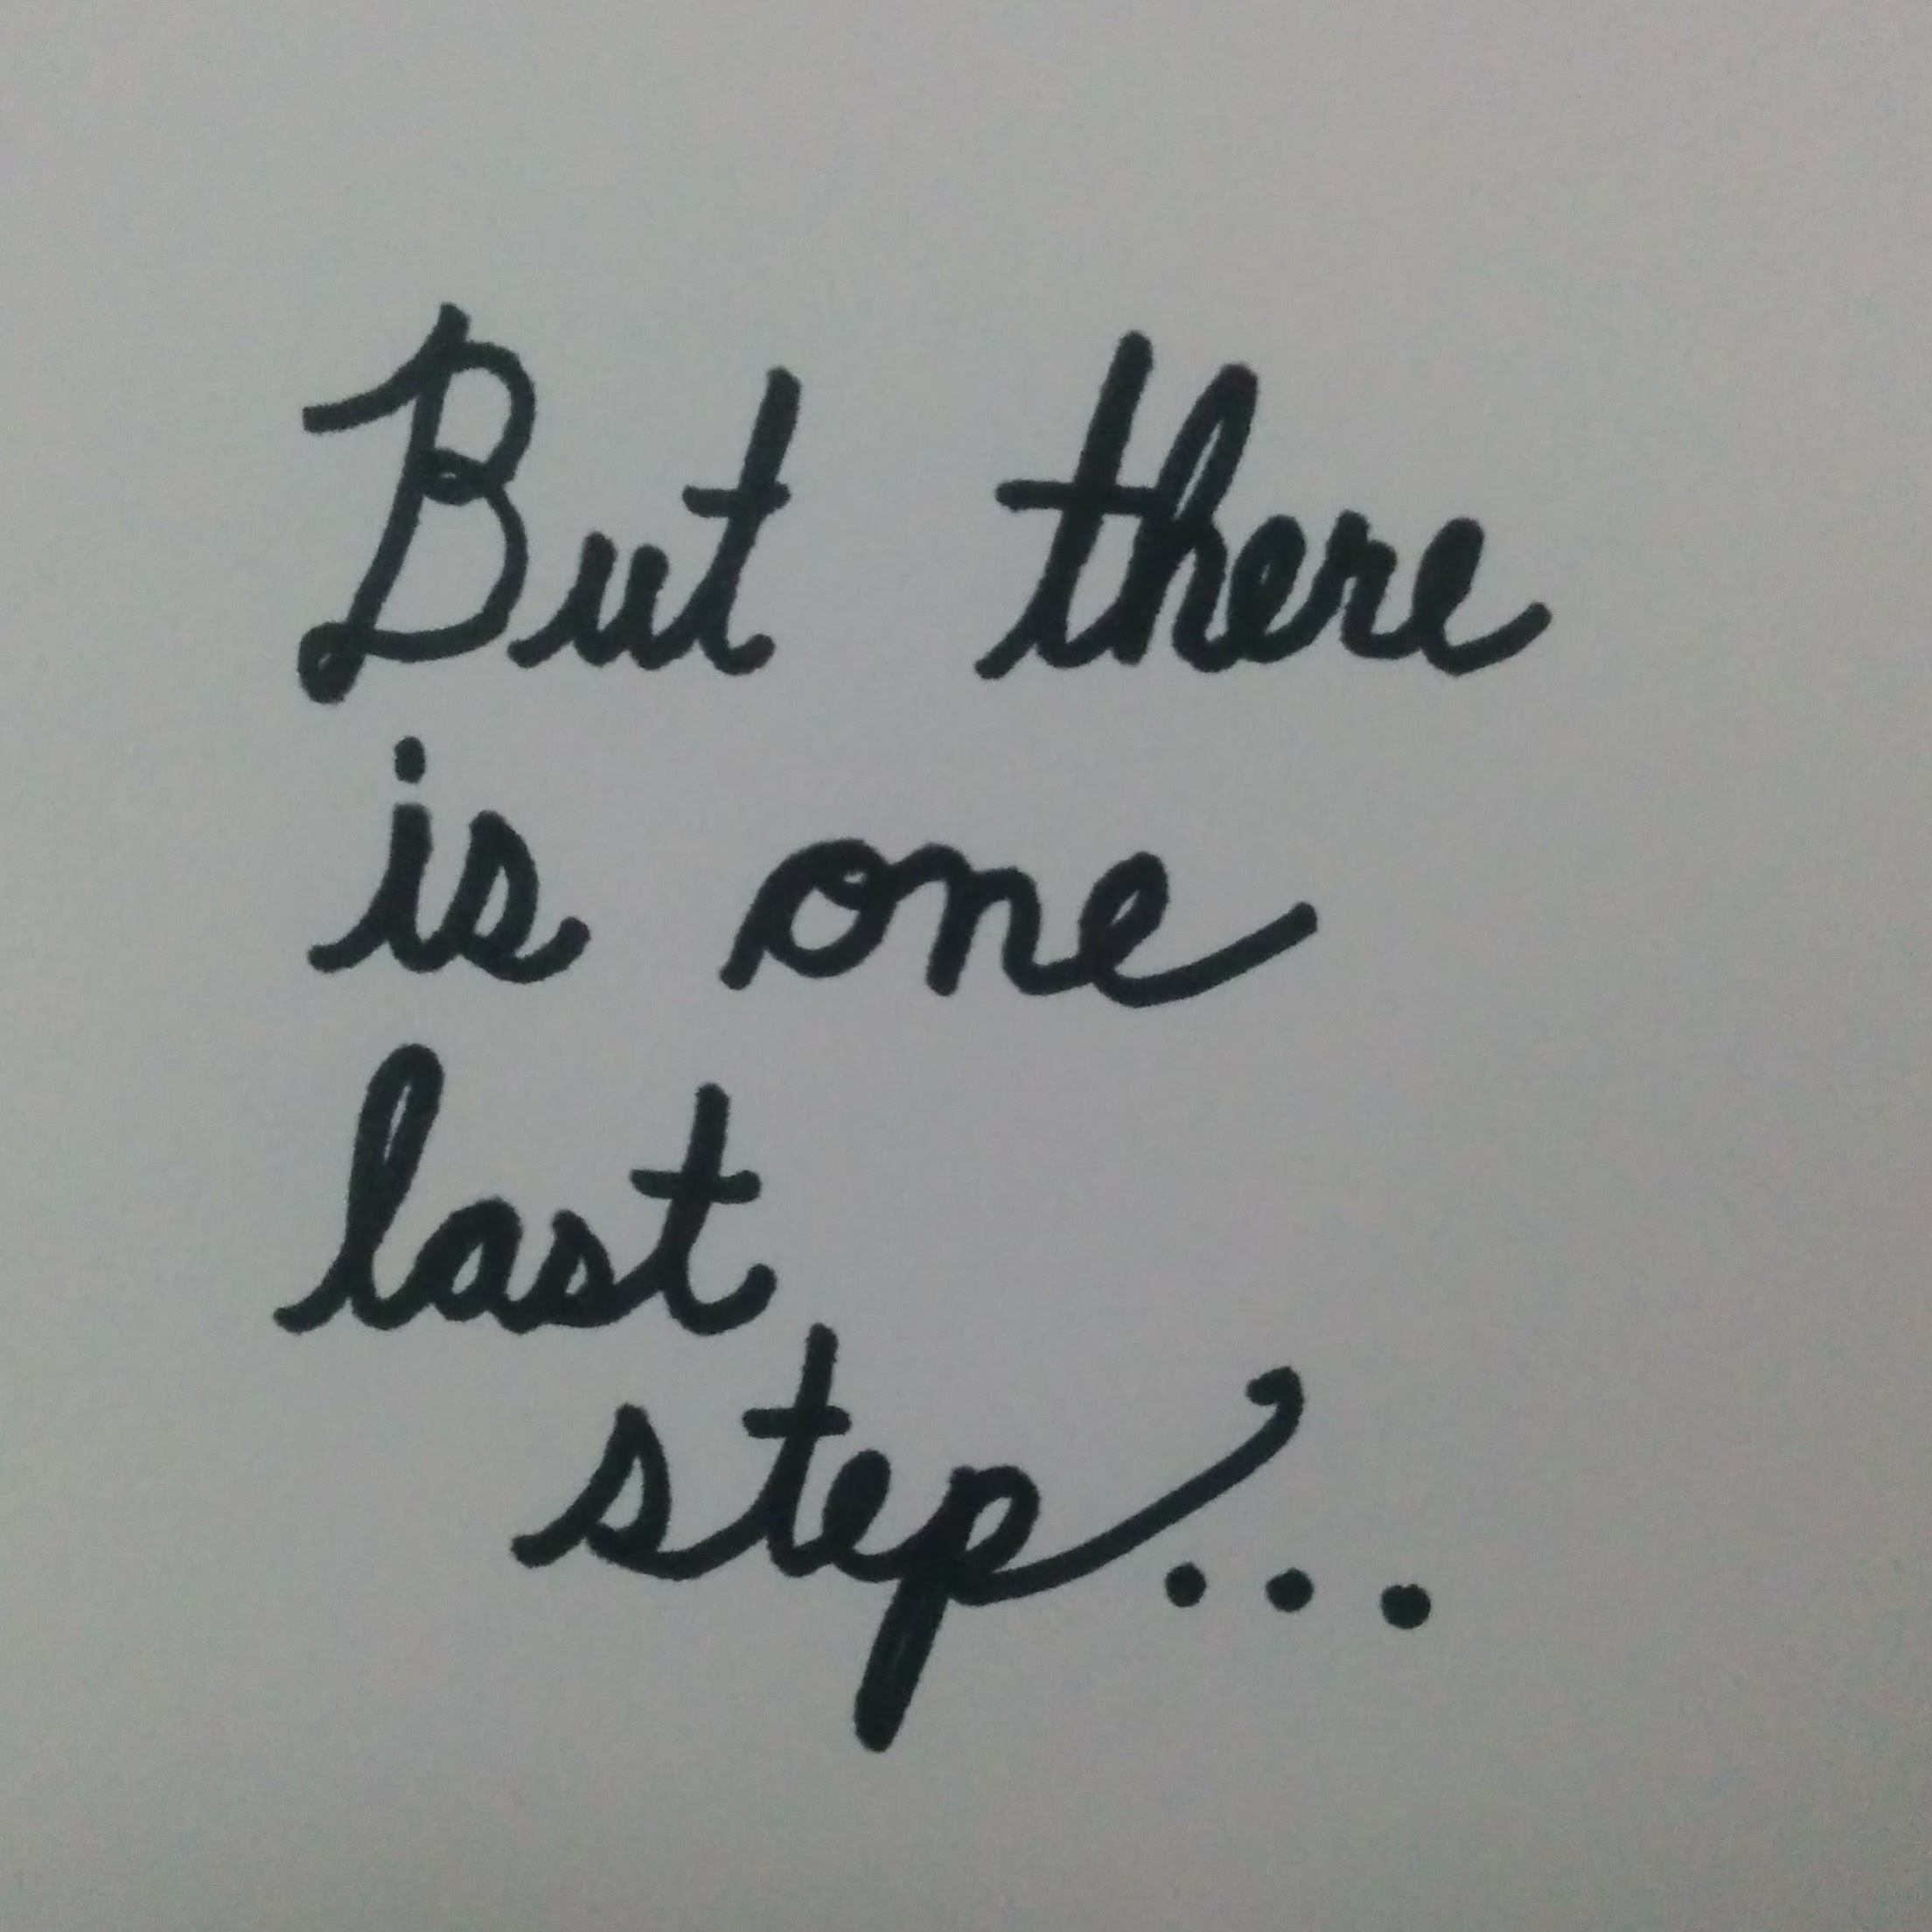 But there
is one
last
step...